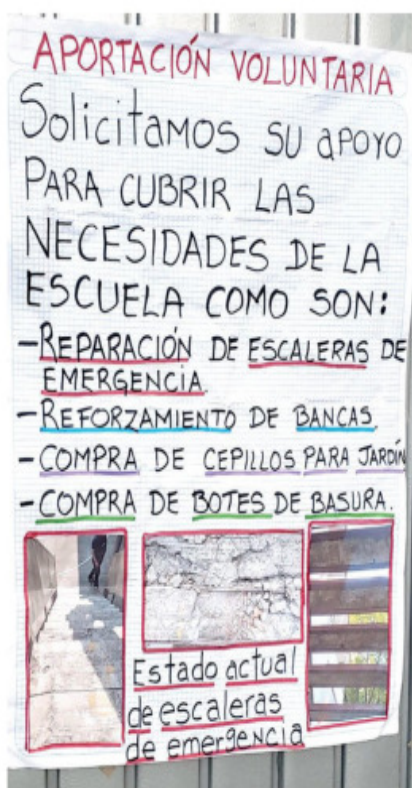 APORTACIÓN VOLUNTARIA
Solicitamos su apoyo
PARA CUBRIR LAS
NECESIDADES DE LA
ESCUELA COMO SON:
-REPARACIÓN DE ESCALERAS DE
EMERGENCIA.
-REFORZAMIENTO DE BANCAS.
-COMPRA DE CEPILLOS PARA JARDÍN
-COMPRA DE BOTES DE BASURA.
Estado actual
de escaleras
de emergencia